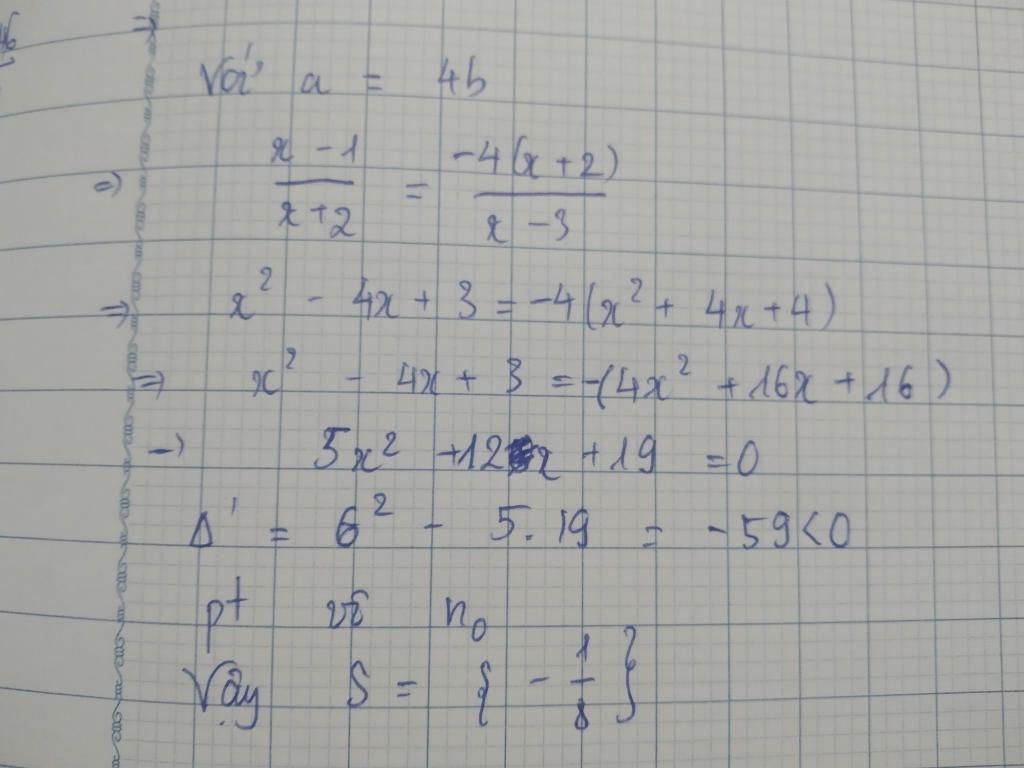 ⇒
Với a = 4b
⇒ (x - 1)/(x + 2) = -4(x + 2)/(x - 3)
⇒ x² - 4x + 3 = -4(x² + 4x + 4)
⇒ x² - 4x + 3 = -(4x² + 16x + 16)
→ 5x² + 12x + 19 = 0
Δ' = 6² - 5.19 = -59 < 0
pt vô n₀
Vậy S = {-1/8}